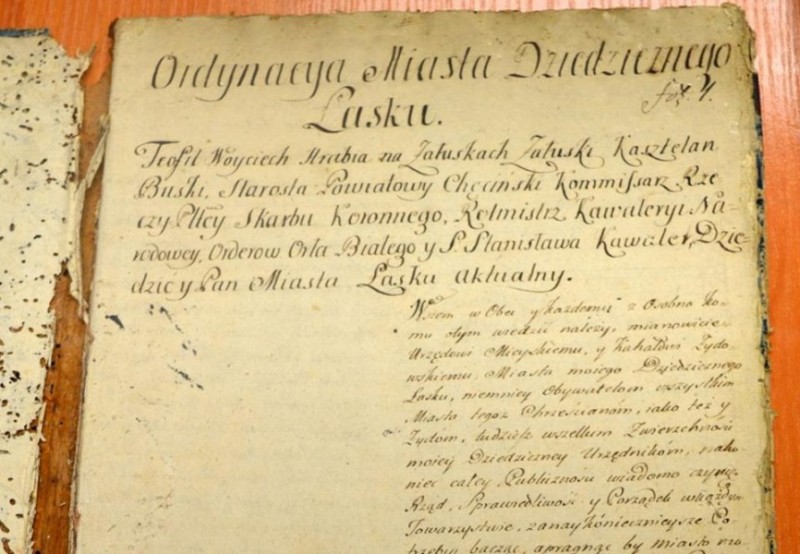 Ordynacya Miasta Dziedzicznego
fol. 4.
Lasku.
Teofil Woyciech Hrabia na Załuskach Załuski Kasztelan
Buski, Starosta Powiatowy Chęciński Kommissarz Rze-
czy Pltey Skarbu Koronnego, Rotmistrz Kawaleryi Na-
rodowey, Orderow Orła Białego y S. Stanisława Kawaler, Dzie-
dzic y Pan Miasta Lasku aktualny.
Wszem w Obec y Każdemu z Osobna Ko-
mu otym wiedzić należy, mianowicie
Urzędowi Mieyskiemu, y Kahałowi Żydo-
wskiemu Miasta moiego Dziedzicznego
Lasku, niemniey Obywatelom wszystkim
Miasta tegoż Chrześcianom, iako też y
Żydom, tudzież wszelkim Zwierzchności
moiey Dziedziczney Urzędnikom, nako-
niec całey Publicznosci wiadomo czynię.
Rząd, Sprawiedliwość y Porządek w każdym
Towarzystwie, za naykoniecznieysze Po-
trzeby bacząc, a pragnąc by miasto